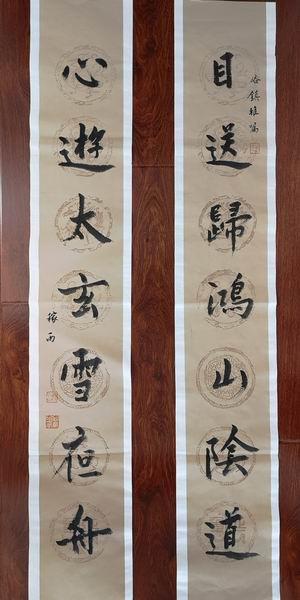 目送歸鴻山陰道
心遊太玄雪夜舟
稼雨